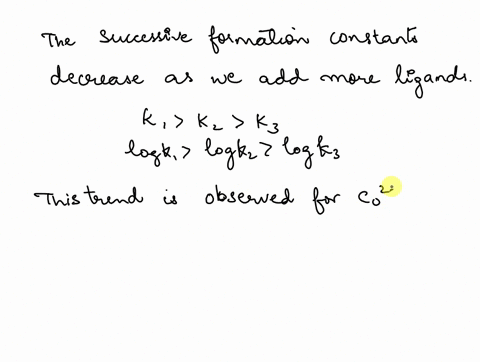 The successive formation constants
decrease as we add more ligands.
K₁ > K₂ > K₃
logK₁ > logK₂ > logK₃
This trend is observed for Co²⁺